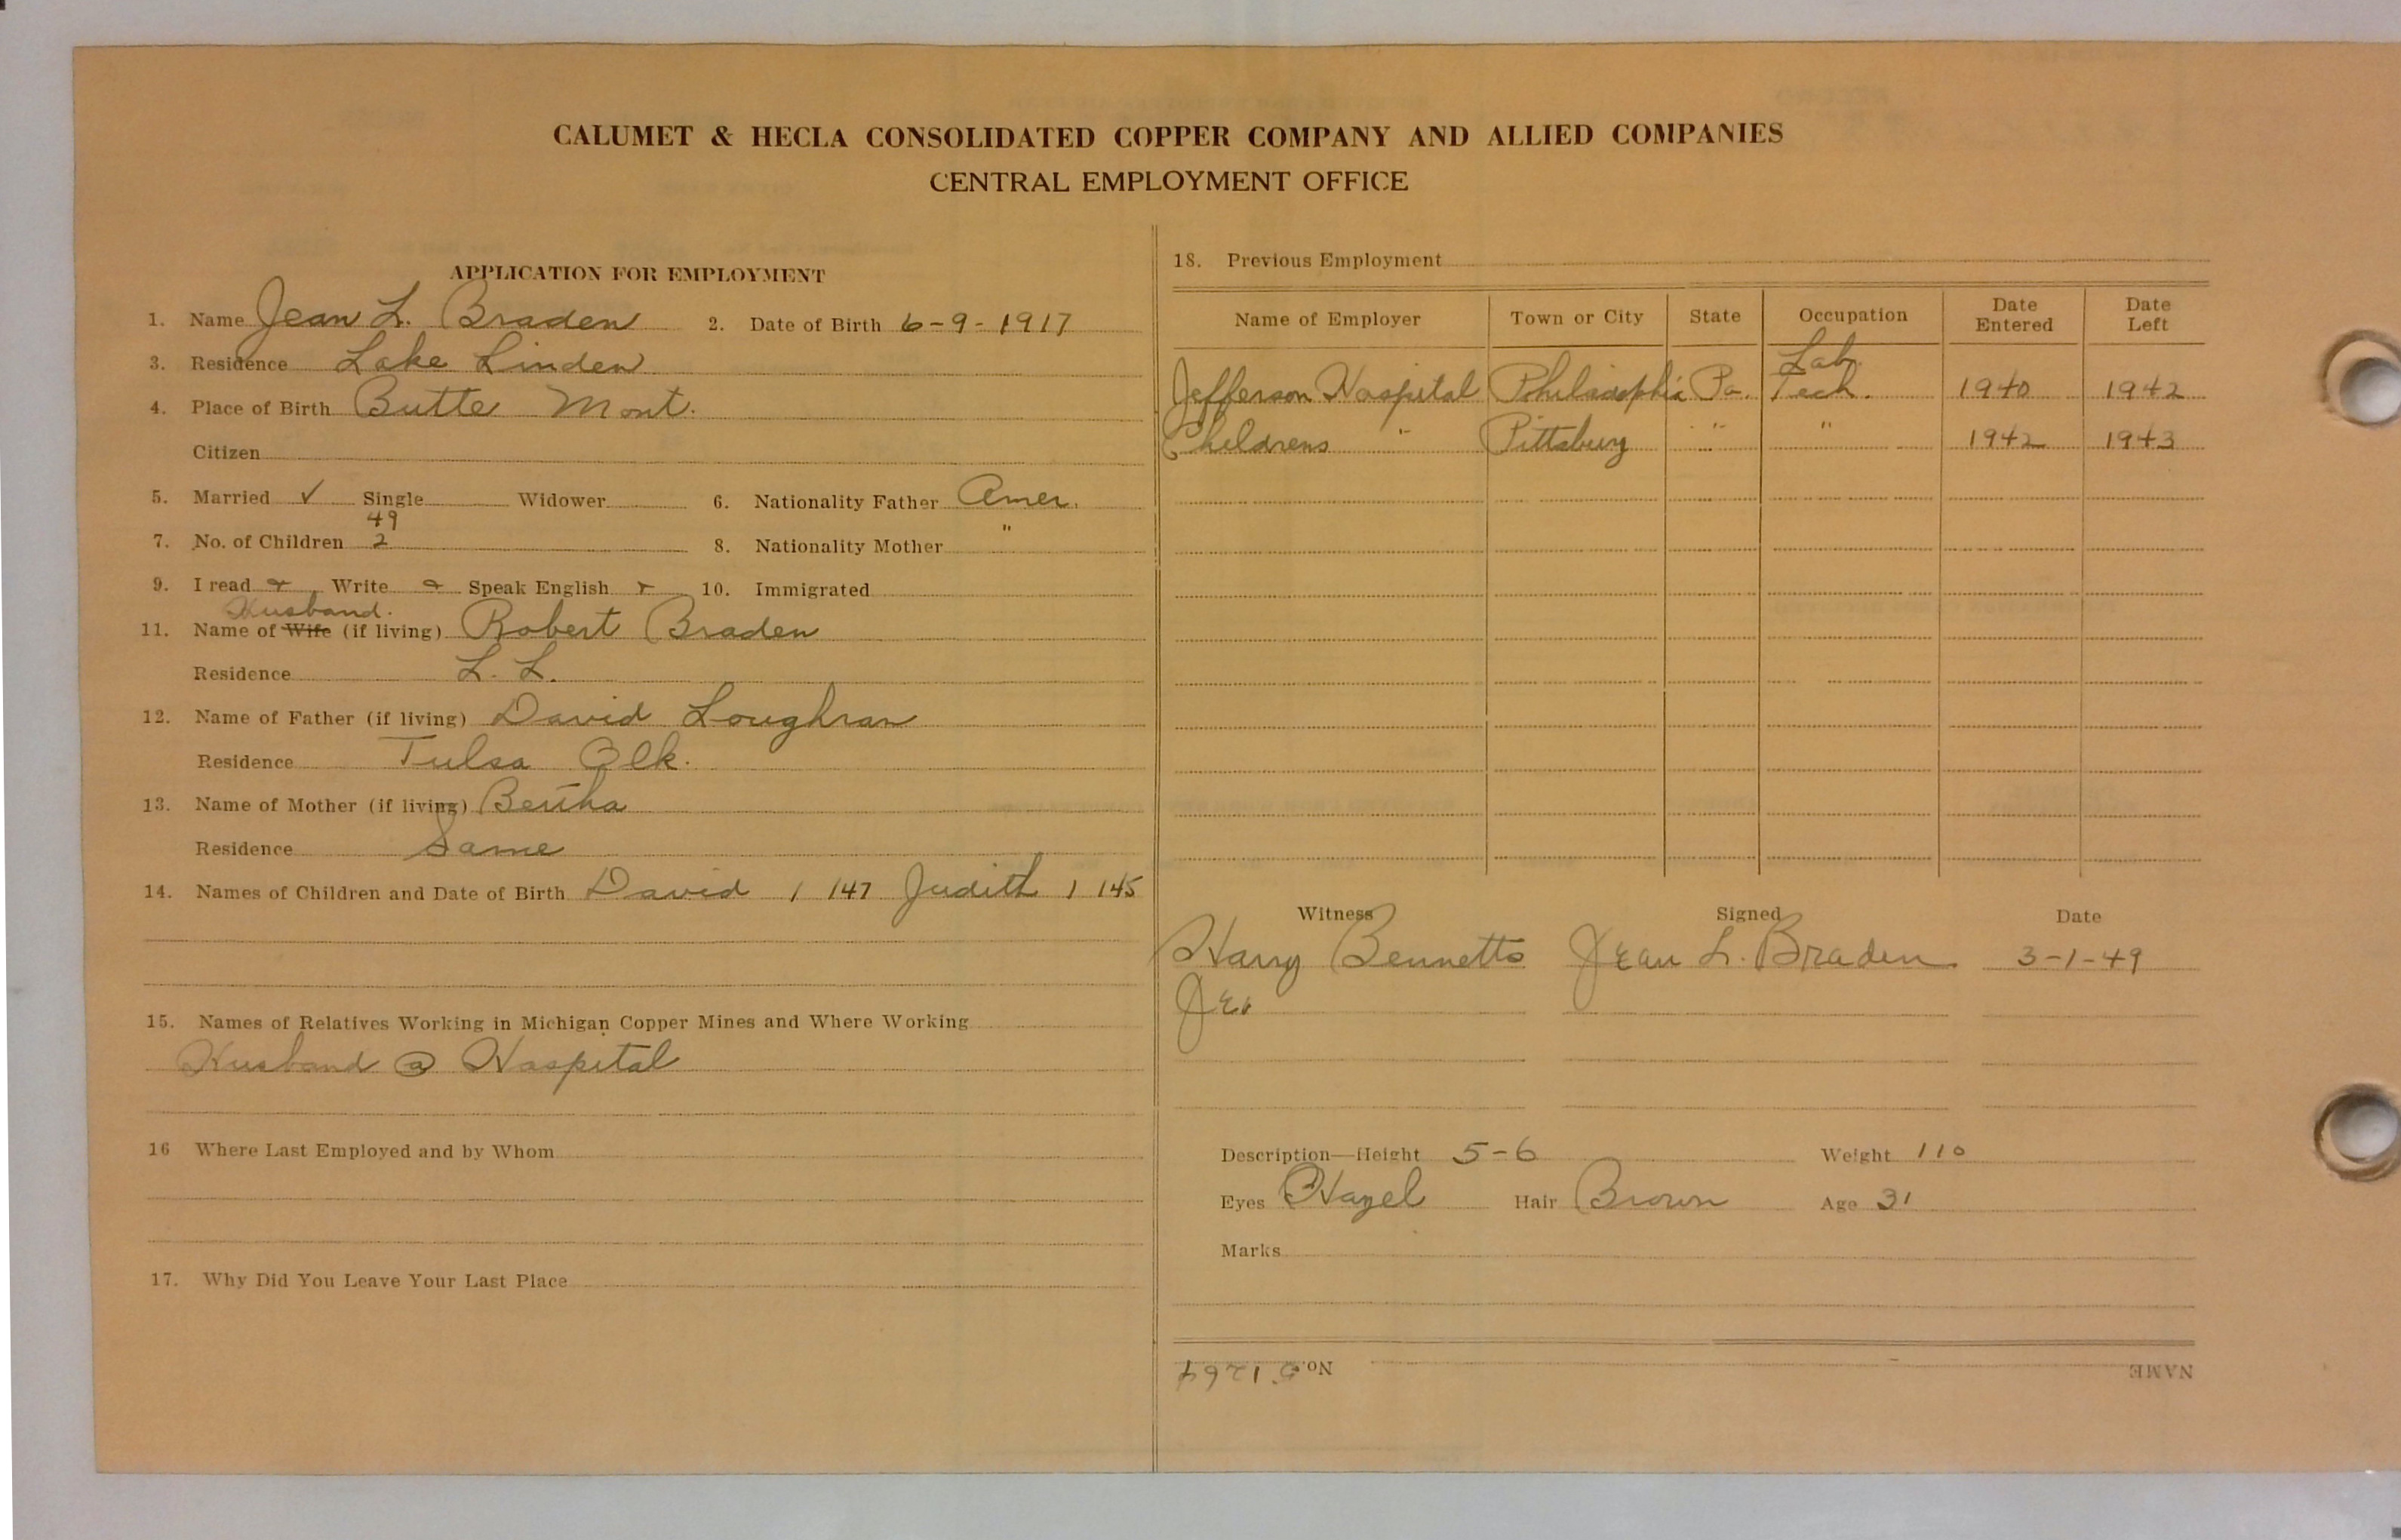 CALUMET & HECLA CONSOLIDATED COPPER COMPANY AND ALLIED COMPANIES
CENTRAL EMPLOYMENT OFFICE
APPLICATION FOR EMPLOYMENT
1. Name Jean L. Braden 2. Date of Birth 6-9-1917
3. Residence Lake Linden
4. Place of Birth Butte Mont.
Citizen
5. Married ✓ Single Widower 6. Nationality Father Amer.
49
7. No. of Children 2 8. Nationality Mother "
9. I read Write Speak English 10. Immigrated
Husband.
11. Name of Wife (if living) Robert Braden
Residence L. L.
12. Name of Father (if living) David Loughran
Residence Tulsa Olk.
13. Name of Mother (if living) Bertha
Residence Same
14. Names of Children and Date of Birth David 1 147 Judith 1 145
15. Names of Relatives Working in Michigan Copper Mines and Where Working
Husband @ Hospital
16 Where Last Employed and by Whom
17. Why Did You Leave Your Last Place
18. Previous Employment
Name of Employer Town or City State Occupation Date Entered Date Left
Lab.
Jefferson Hospital Philadelphia Pa. Tech. 1940 1942
Childrens " Pittsburg " " 1942 1943
Witness Signed Date
Harry Bennetts Jean L. Braden 3-1-49
Description—Height 5-6 Weight 110
Eyes Hazel Hair Brown Age 31
Marks
No. 51264 NAME